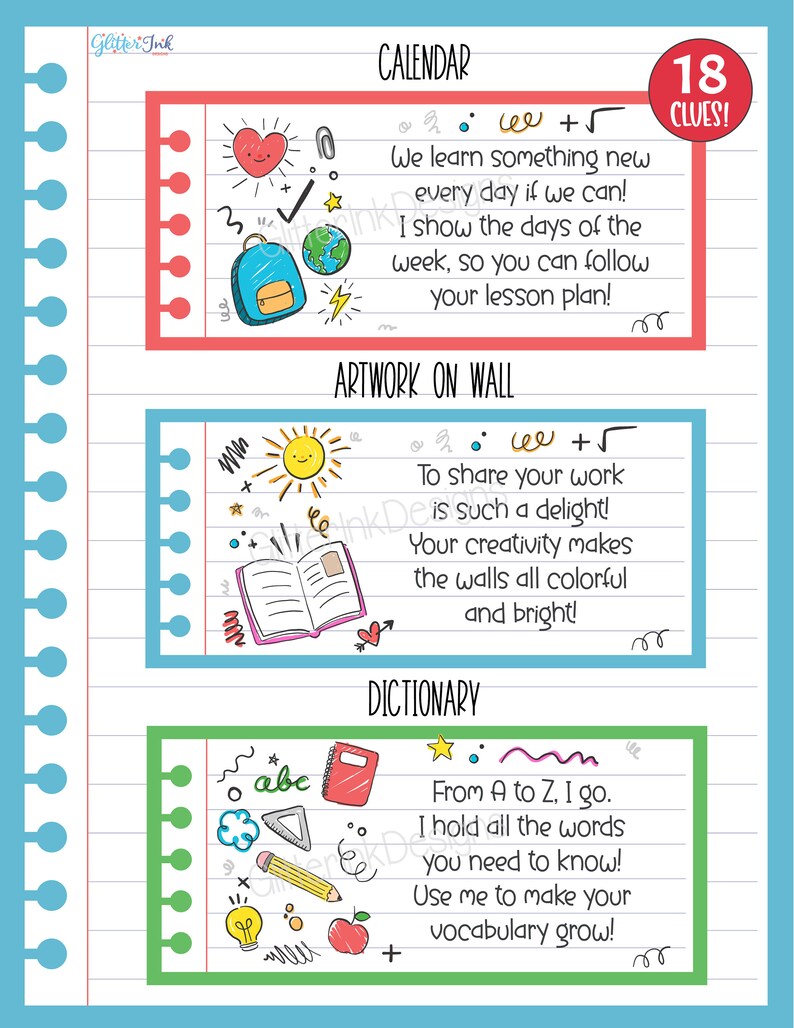 Glitter Ink
DESIGNS
CALENDAR
18
CLUES!
We learn something new
every day if we can!
I show the days of the
week, so you can follow
your lesson plan!
GlitterInkDesigns
ARTWORK ON WALL
To share your work
is such a delight!
Your creativity makes
the walls all colorful
and bright!
GlitterInkDesigns
DICTIONARY
abc
From A to Z, I go.
I hold all the words
you need to know!
Use me to make your
vocabulary grow!
GlitterInkDesigns